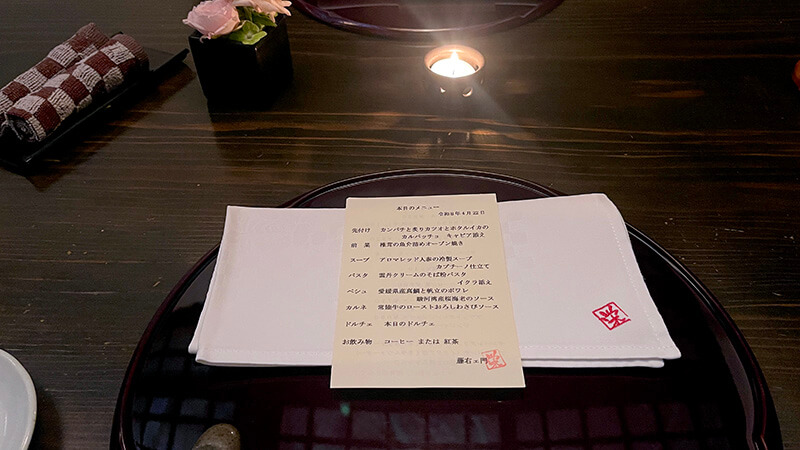 本日のメニュー
令和6年4月22日
先付け カンパチと炙りカツオとホタルイカの
カルパッチョ キャビア添え
前菜 椎茸の魚介詰めオーブン焼き
スープ アロマレッド人参の冷製スープ
カプチーノ仕立て
パスタ 雲丹クリームのそば粉パスタ
イクラ添え
ペシュ 愛媛県産真鯛と帆立のポワレ
駿河湾産桜海老のソース
カルネ 常陸牛のローストおろしわさびソース
ドルチェ 本日のドルチェ
お飲み物 コーヒー または 紅茶
藤右ェ門